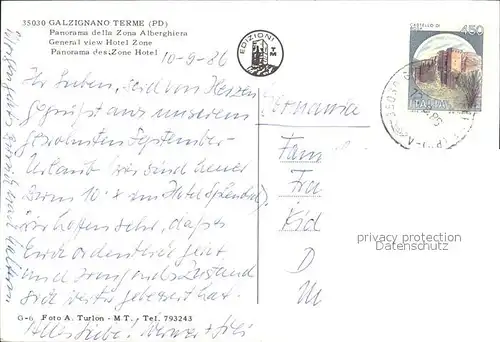 35030 GALZIGNANO TERME (PD)
Panorama della Zona Alberghiera
General view Hotel Zone
Panorama des Zone Hotel
EDIZIONI
TM
CASTELLO DI
450
ITALIA
10-9-86
Ihr Lieben, seid von Herzen
gegrüßt aus unserem
gewohnten September-
Urlaub. Wir sind heuer
zum 10. x im Hotel Splendid,
Wir hoffen sehr, daß es
Euch ordentlich geht
und
Zustand
sich weiter gebessert hat.
Alles Liebe! Werner +
Germania
Fam
Fra
D
M
privacy protection
Datenschutz
G-6 Foto A. Turlon - M.T. - Tel. 793243